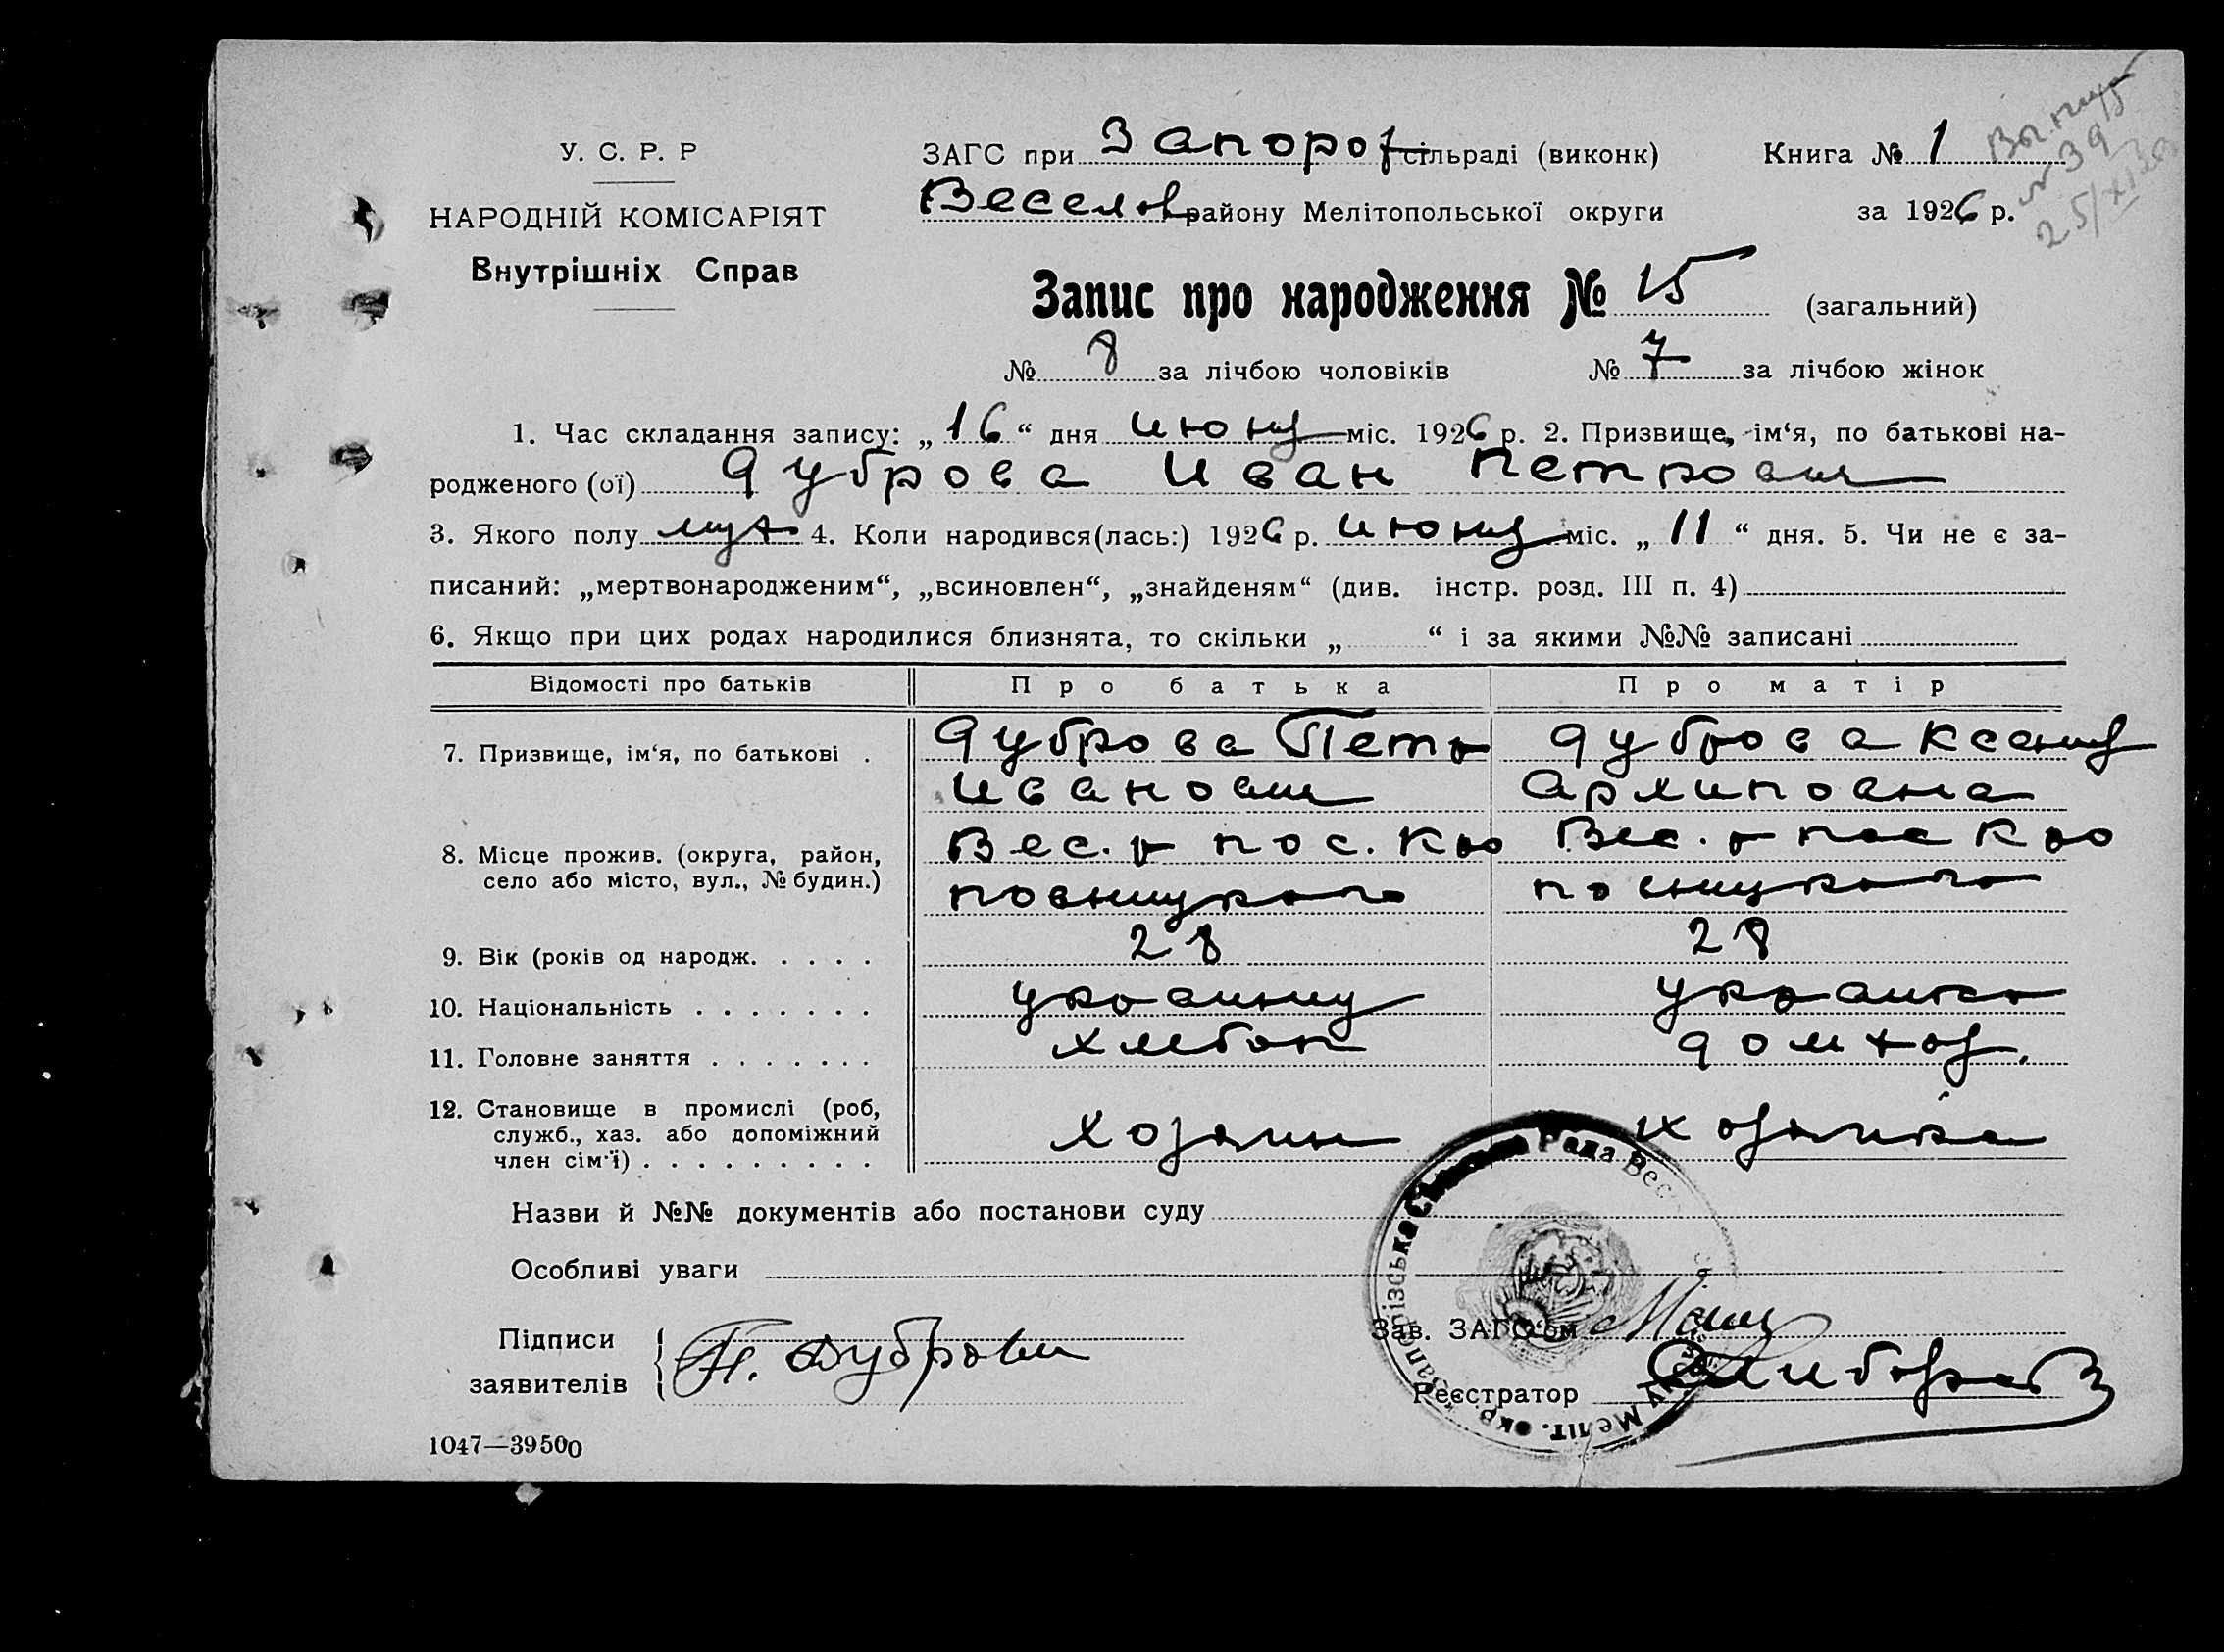 У. С. Р. Р
НАРОДНІЙ КОМІСАРІЯТ
Внутрішніх Справ
ЗАГС при Запорож сільраді (виконк) Книга № 1
Веселов району Мелітопольської округи за 1926 р.
№ 39
25/XI
Запис про народження № 15 (загальний)
№ 8 за лічбою чоловіків № 7 за лічбою жінок
1. Час складання запису: „16“ дня июня міс. 1926 р. 2. Призвище, ім‘я, по батькові на-
родженого (ої) Дуброва Иван Петрович
3. Якого полу муж 4. Коли народився(лась:) 1926 р. июня міс. „11“ дня. 5. Чи не є за-
писаний: „мертвонародженим“, „всиновлен“, „знайденям“ (див. інстр. розд. III п. 4)
6. Якщо при цих родах народилися близнята, то скільки „ “ і за якими №№ записані
Відомості про батьків Про батька Про матір
7. Призвище, ім‘я, по батькові . Дуброва Петр Дуброва Ксения
Иванович Архиповна
8. Місце прожив. (округа, район, Вес. р пос. Кро Вес. р пос Кро
село або місто, вул., № будин.) повницкого
9. Вік (років од народж. . . . . 28 28
10. Національність . . . . . . . украинец украинка
11. Головне заняття . . . . . . . хлебоп домхоз.
12. Становище в промислі (роб,
служб., хаз. або допоміжний хозяин хозяйка
член сім‘ї) . . . . . . . . .
Назви й №№ документів або постанови суду
Особливі уваги
Підписи
заявителів П. Дуброва
Зав. ЗАГС‘ом
Реєстратор
Запорізська Сільська Рада Вес
Меліт. окр.
1047—39500